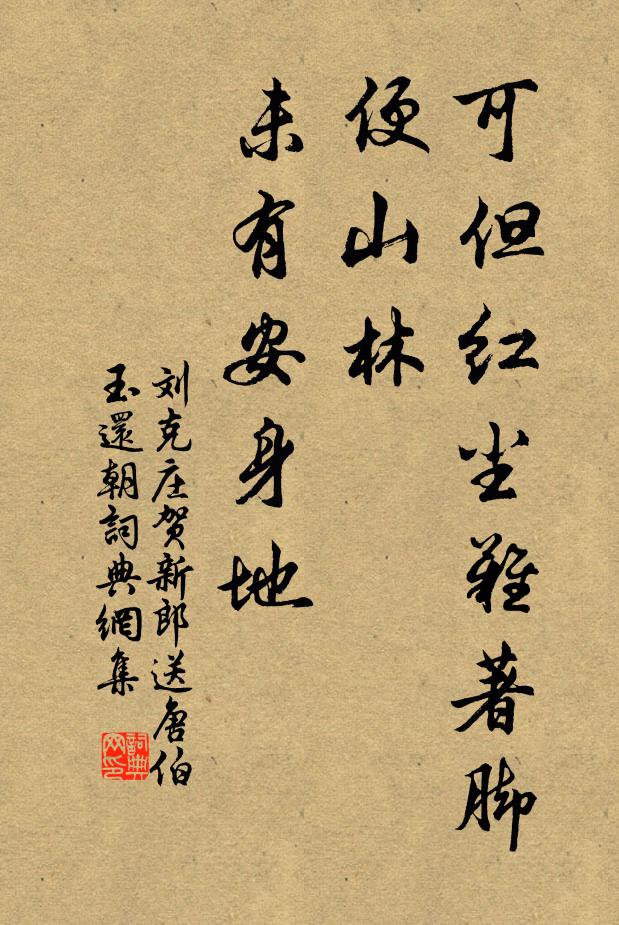 可但红尘难著脚
便山林
未有安身地
刘克庄贺新郎送唐伯
玉還朝詞典網集
詞典
网印